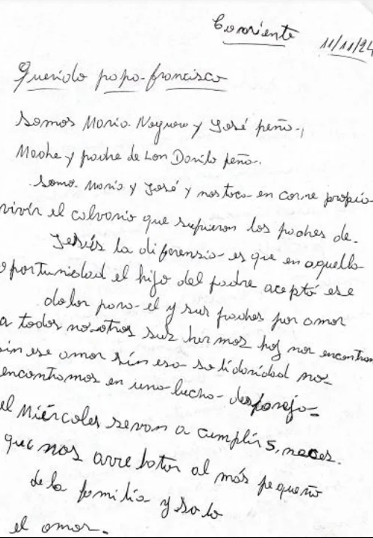 Corriente
11/11/24
Querido papa francisco
Somos Maria Noguera y José peña,
Madre y padre de Loan Danilo peña.
Somo Maria y José y nos toca en carne propia
vivir el calvario que supieron los padres de
Jesús la diferensia es que en aquella
oportunidad el hijo del padre aceptó ese
dolor para el y sus padres por amor
a todos nosotros sus hermos hoy nos encontramos
sin ese amor sin esa solidaridad nos
encontramos en una lucha despareja
el Miércoles se van a cumplir 5, meces
que nos arrebatar al más pequeño
de la familia y solo
el amor.